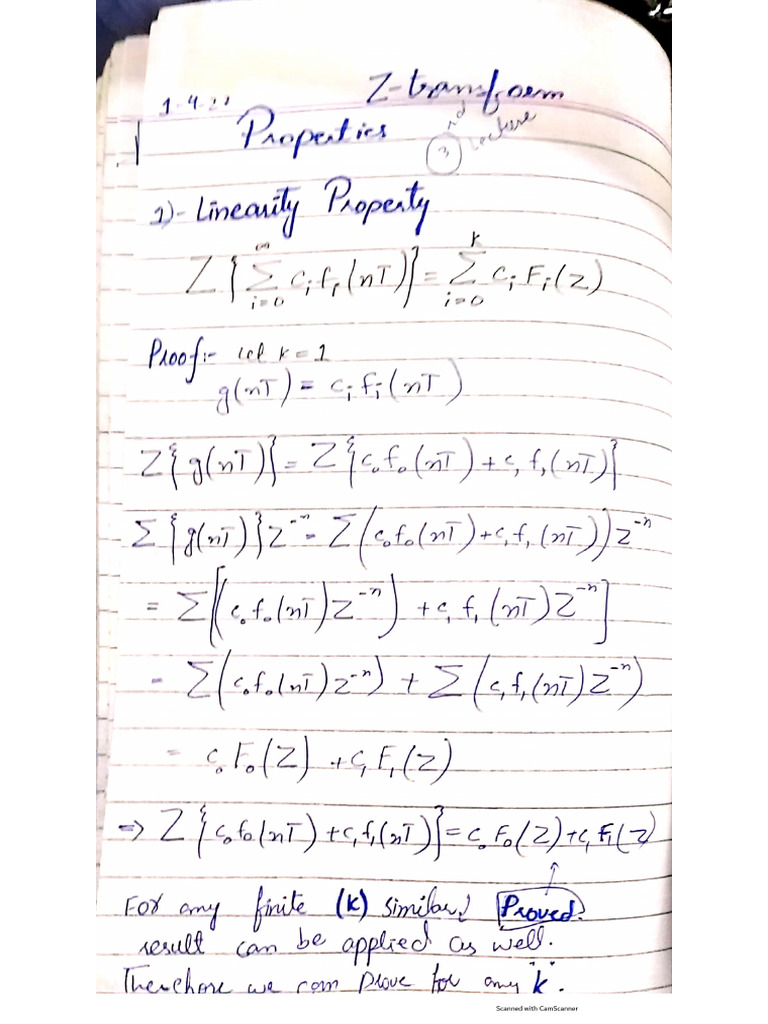 1-4-21 Z-transform
Properties 3rd Lecture
1)- Linearity Property
Z{∑_{i=0}^{∞} c_i f_i(nT)} = ∑_{i=0}^{k} c_i F_i(z)
Proof:- let k = 1
g(nT) = c_i f_i(nT)
Z{g(nT)} = Z{c₀f₀(nT) + c₁f₁(nT)}
∑{g(nT)}Z^{-n} = ∑(c₀f₀(nT) + c₁f₁(nT))Z^{-n}
= ∑[(c₀f₀(nT)Z^{-n}) + c₁f₁(nT)Z^{-n}]
= ∑(c₀f₀(nT)Z^{-n}) + ∑(c₁f₁(nT)Z^{-n})
= c₀F₀(Z) + c₁F₁(Z)
⇒ Z{c₀f₀(nT) + c₁f₁(nT)} = c₀F₀(Z) + c₁F₁(Z)
For any finite (k) similar Proved.
result can be applied as well.
Therefore we can prove for any k.
Scanned with CamScanner